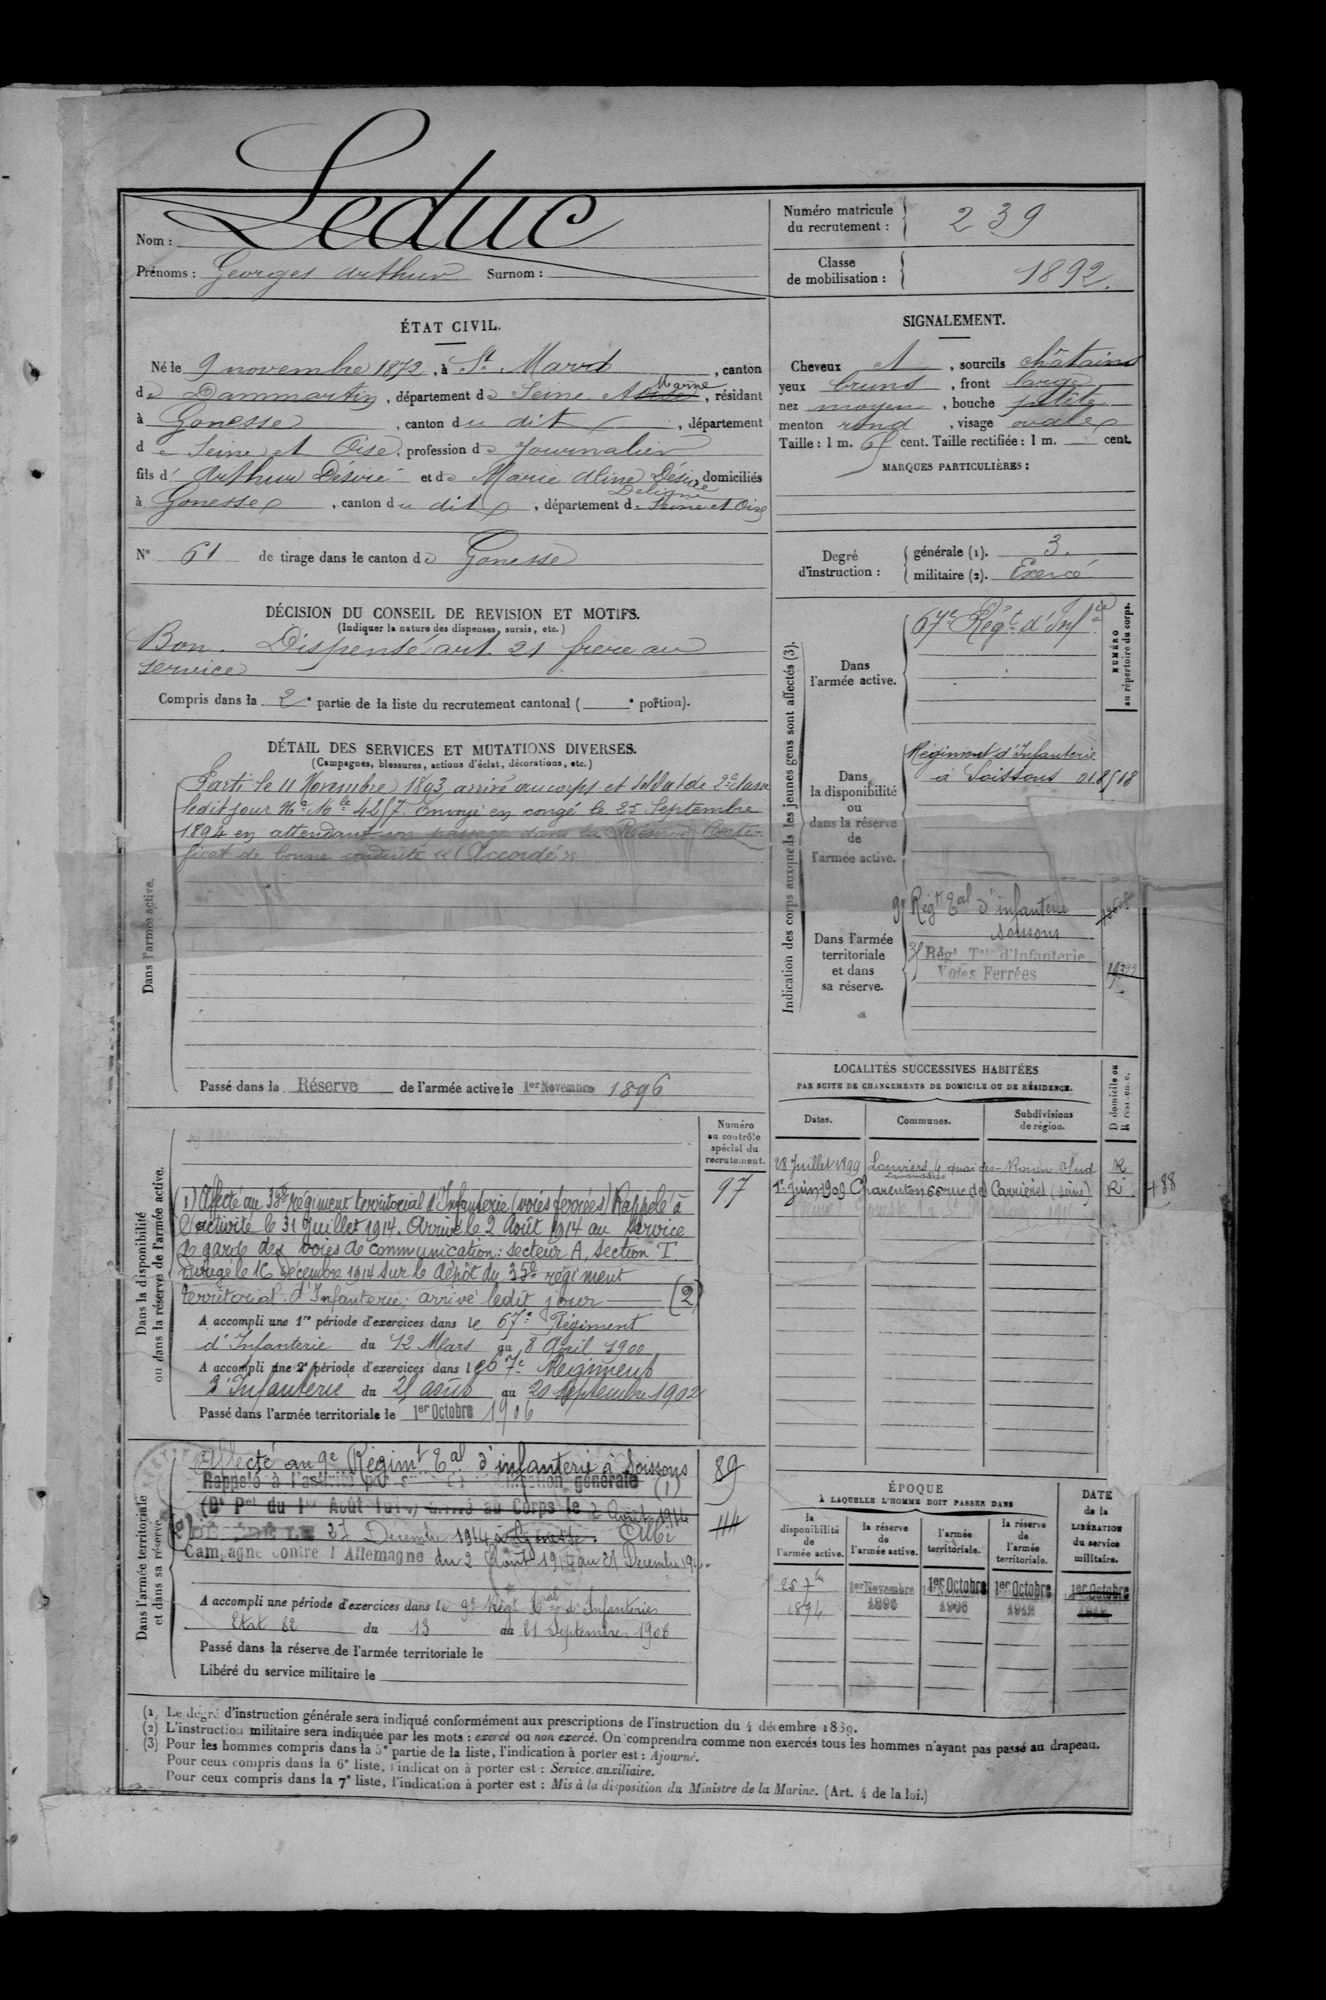 Nom : Leduc
Prénoms : Georges Arthur Surnom :
Numéro matricule du recrutement : 239
Classe de mobilisation : 1892.
ÉTAT CIVIL.
Né le 9 novembre 1872, à St. Mard, canton
de Dammartin, département de Seine et Marne, résidant
à Gonesse, canton du dit, département
de Seine et Oise, profession de Journalier
fils d' Arthur Désiré et de Marie Aline Désirée Deligne, domiciliés
à Gonesse, canton du dit, département de Seine et Oise
N° 61 de tirage dans le canton de Gonesse
SIGNALEMENT.
Cheveux , sourcils châtains
yeux bruns, front large
nez moyen, bouche petite
menton rond, visage ovale
Taille : 1 m. cent. Taille rectifiée : 1 m. cent.
MARQUES PARTICULIÈRES :
Degré d'instruction : générale (1). 3.
militaire (2). Exercé
DÉCISION DU CONSEIL DE REVISION ET MOTIFS.
(Indiquer la nature des dispenses, sursis, etc.)
Bon. Dispensé art. 21 frère au
service
Compris dans la 2e partie de la liste du recrutement cantonal ( e portion).
DÉTAIL DES SERVICES ET MUTATIONS DIVERSES.
(Campagnes, blessures, actions d'éclat, décorations, etc.)
Dans l'armée active.
Parti le 11 Novembre 1893 arrivé au corps et soldat de 2e classe
ledit jour Envoyé en congé le 25 Septembre
1894 en attendant son passage dans la Réserve Certi-
ficat de bonne conduite « Accordé »
Passé dans la Réserve de l'armée active le 1er Novembre 1896
Indication des corps auxquels les jeunes gens sont affectés (3).
NUMÉRO au répertoire du corps.
Dans l'armée active.
67e Régt d'Infie
Dans la disponibilité ou dans la réserve de l'armée active.
Régiment d'Infanterie
à Soissons
Dans l'armée territoriale et dans sa réserve.
9e Régt Tal d'infanterie
Soissons
Régt Tal d'Infanterie
Voies Ferrées
LOCALITÉS SUCCESSIVES HABITÉES
PAR SUITE DE CHANGEMENTS DE DOMICILE OU DE RÉSIDENCE.
Dates. Communes. Subdivisions de région. D domicile ou R résidence.
28 Juillet 1899 Louviers, 4 quai des Rouen Sud R
1er Juin 1909 Charenton 66 rue des Carrières (Seine) R
Dans la disponibilité ou dans la réserve de l'armée active.
Numéro au contrôle spécial du recrutement.
97
(1) Affecté au 35e régiment territorial d'Infanterie (voies ferrées) Rappelé à
l'activité le 31 Juillet 1914. Arrivé le 2 Août 1914 au service
de garde des voies de communication : secteur A, section I
Dirigé le 16 Décembre 1914 sur le dépôt du 35e régiment
territorial d'Infanterie, arrivé ledit jour (2)
A accompli une 1re période d'exercices dans le 67e Régiment
d'Infanterie du 12 Mars au 8 Avril 1900
A accompli une 2e période d'exercices dans le 67e Régiment
d'Infanterie du août au 20 Septembre 1902
Passé dans l'armée territoriale le 1er Octobre 1906
Dans l'armée territoriale et dans sa réserve.
Affecté au 9e Régimt Tal d'infanterie à Soissons 89
Rappelé à l'activité générale (1)
(Dt Pel du 1er Août 1914) arrivé au Corps le 2 Août 1914
27 Décembre 1914
Campagne contre l'Allemagne du 2 Août 1914 au 27 Décembre
A accompli une période d'exercices dans le 9e Régt Tal d'Infanterie
du 13 au 21 Septembre 1908
Passé dans la réserve de l'armée territoriale le
Libéré du service militaire le
ÉPOQUE
À LAQUELLE L'HOMME DOIT PASSER DANS
la disponibilité de l'armée active. la réserve de l'armée active. l'armée territoriale. la réserve de l'armée territoriale.
DATE de la LIBÉRATION du service militaire.
25 7bre 1894 1er Novembre 1896 1er Octobre 1906 1er Octobre 1912 1er Octobre
(1) Le degré d'instruction générale sera indiqué conformément aux prescriptions de l'instruction du 4 décembre 1889.
(2) L'instruction militaire sera indiquée par les mots : exercé ou non exercé. On comprendra comme non exercés tous les hommes n'ayant pas passé au drapeau.
(3) Pour les hommes compris dans la 5e partie de la liste, l'indication à porter est : Ajourné.
Pour ceux compris dans la 6e liste, l'indication à porter est : Service auxiliaire.
Pour ceux compris dans la 7e liste, l'indication à porter est : Mis à la disposition du Ministre de la Marine. (Art. 4 de la loi.)